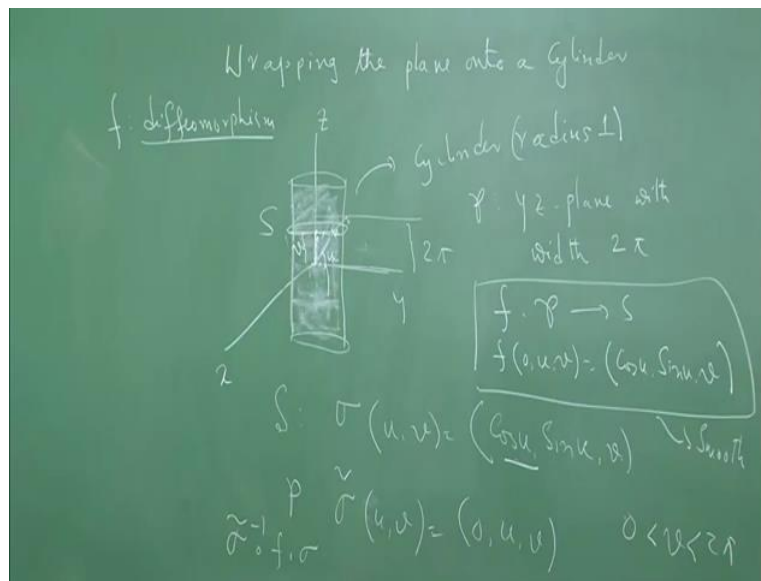 Wrapping the plane onto a Cylinder
f: diffeomorphism
z
Cylinder (radius 1)
S
𝒫: yz-plane with
width 2π
2π
y
x
f: 𝒫 → S
f(0,u,v) = (Cosu, Sinu, v)
Smooth
S: σ(u,v) = (Cosu, Sinu, v)
p σ̃(u,v) = (0, u, v) 0 < v < 2π
σ̃⁻¹∘f∘σ